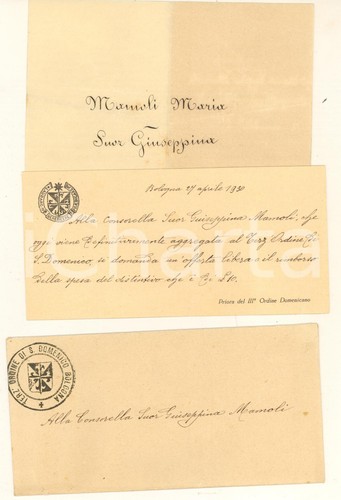 Mamoli Maria
Suor Giuseppina
Bologna 27 aprile 1930
Alla Consorella Suor Giuseppina Mamoli, che
oggi viene definitivamente aggregata al Terz'Ordine di
S. Domenico, si domanda un'offerta libera e il rimborso
della spesa del distintivo che è di L.
Priora del III° Ordine Domenicano
TERZ'ORDINE DI S. DOMENICO BOLOGNA
Alla Consorella Suor Giuseppina Mamoli